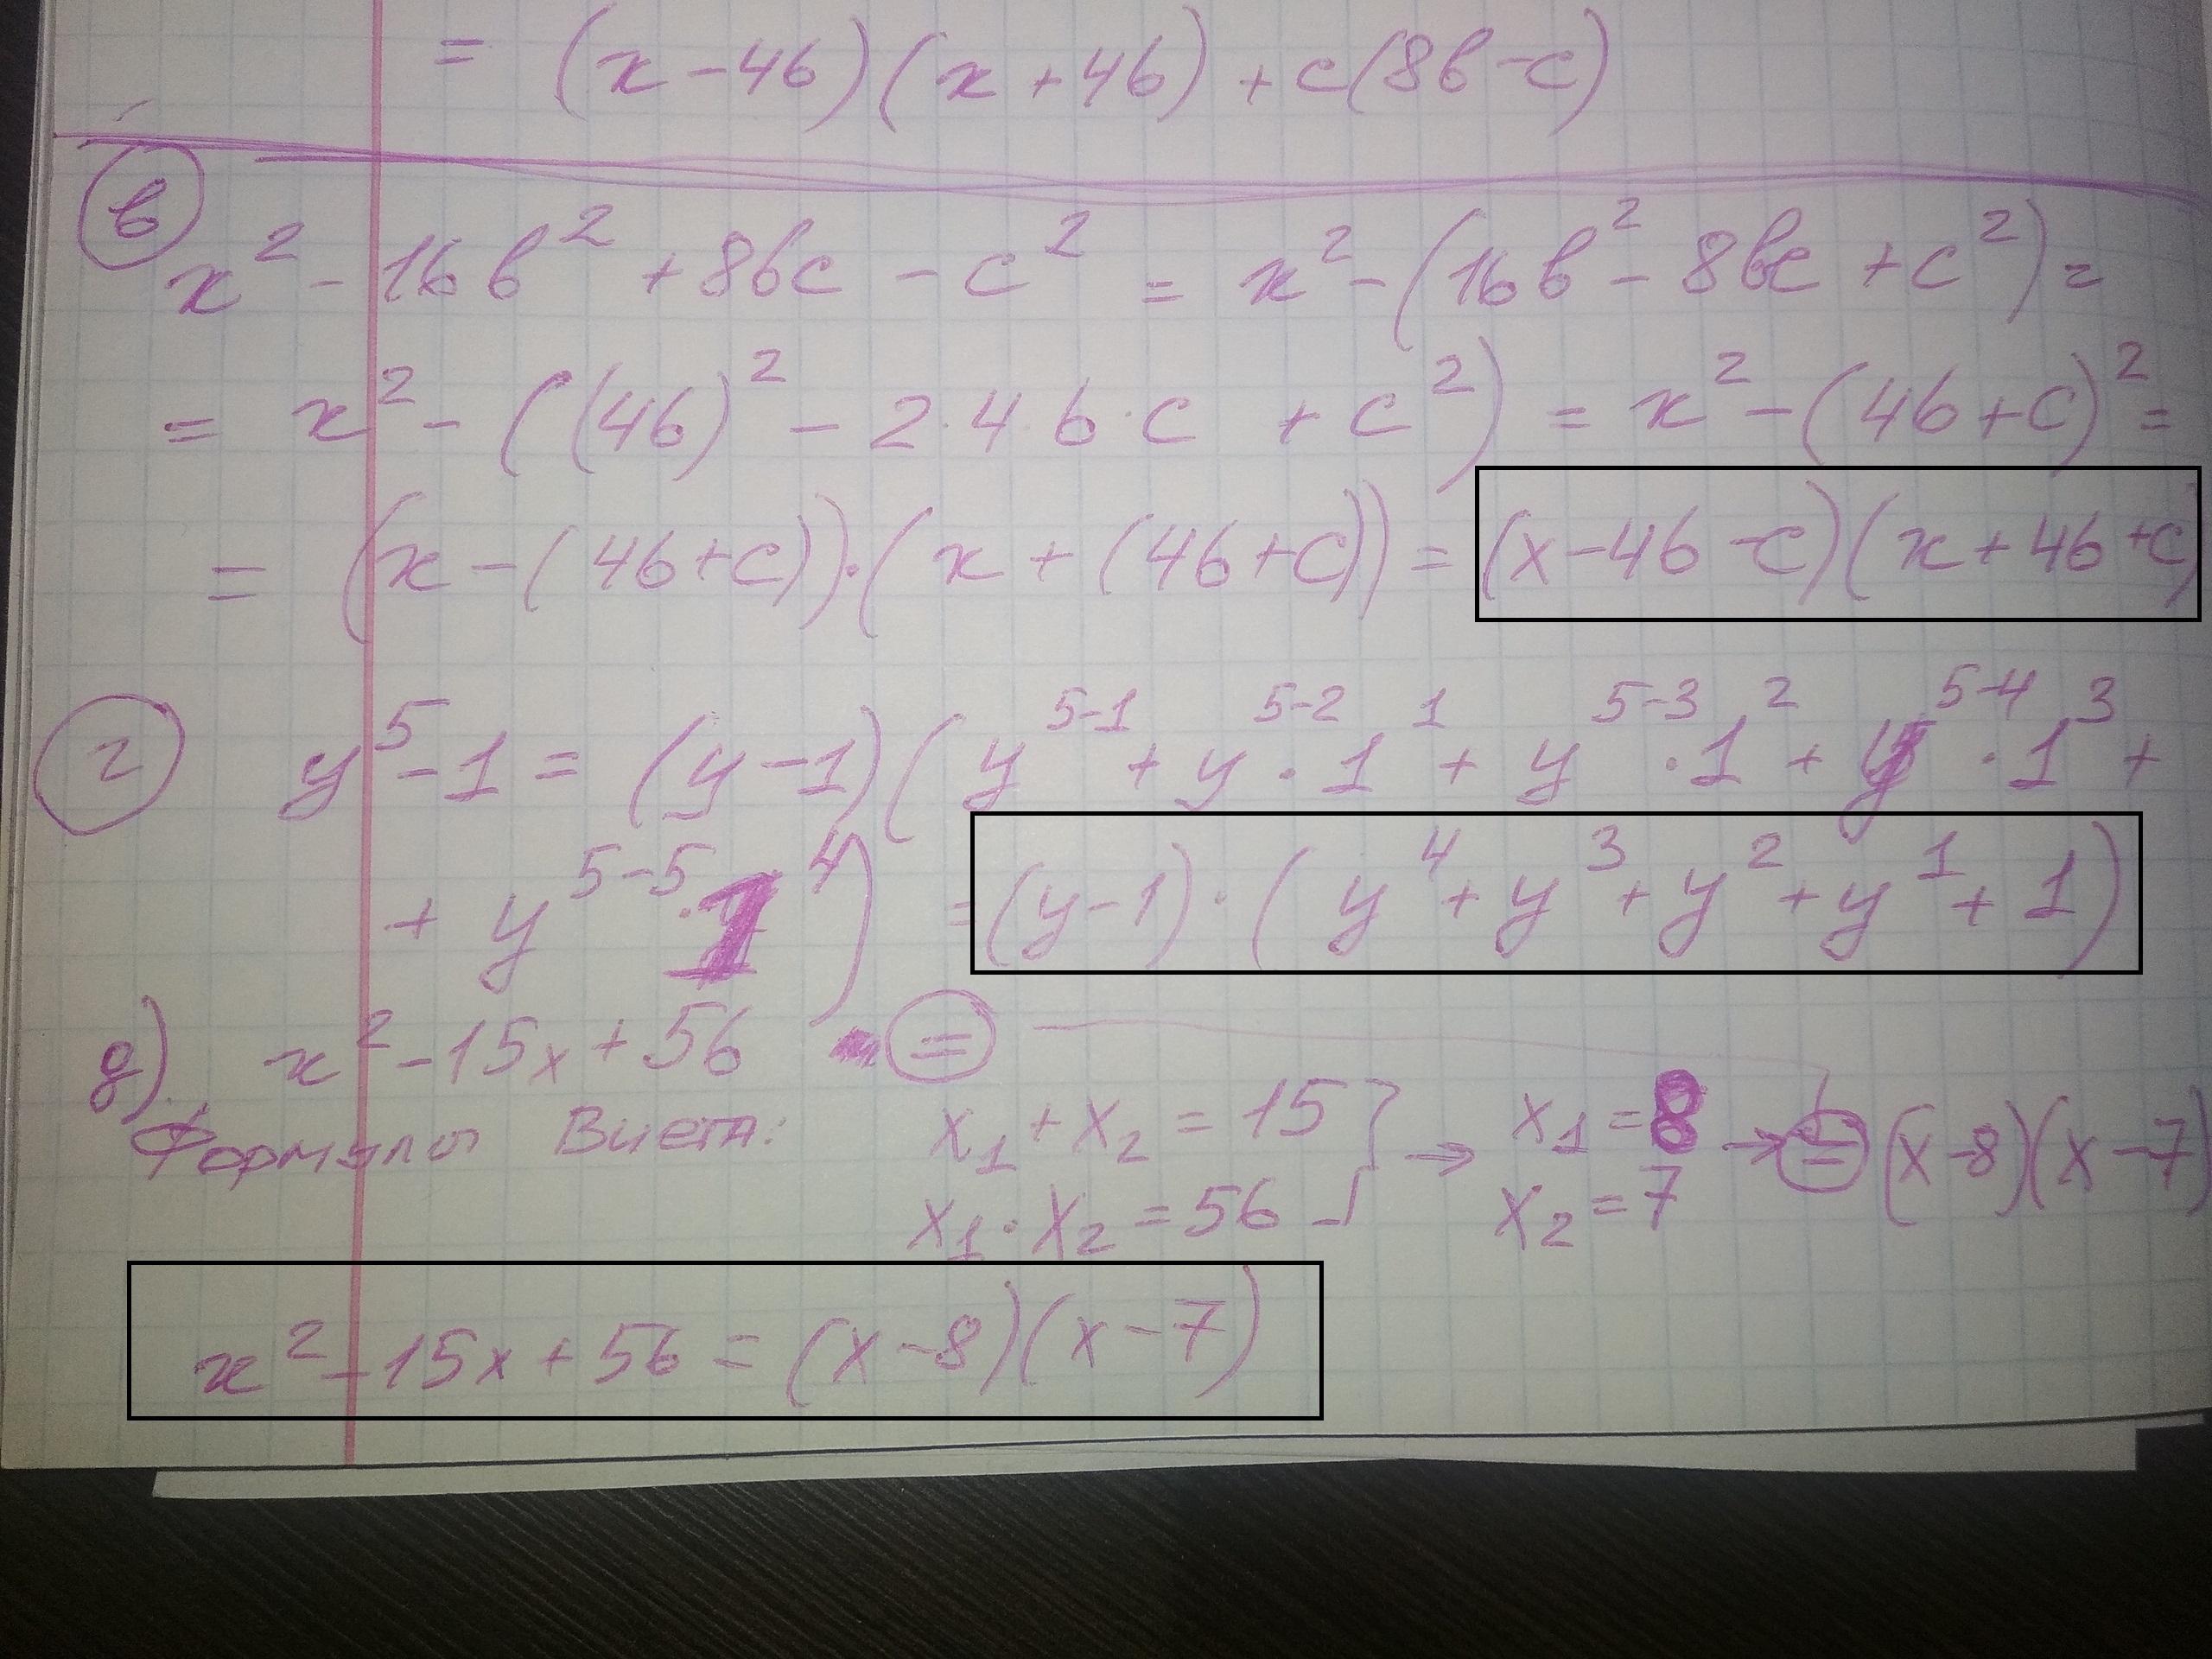 = (x-4b)(x+4b)+c(8b-c)
в
x² - 16b² + 8bc - c² = x² - (16b² - 8bc + c²) =
= x² - ((4b)² - 2·4·b·c + c²) = x² - (4b+c)² =
= (x-(4b+c))·(x+(4b+c)) = (x-4b-c)(x+4b+c)
г
y⁵-1 = (y-1)(y⁵⁻¹ + y⁵⁻²·1¹ + y⁵⁻³·1² + y⁵⁻⁴·1³ +
+ y⁵⁻⁵·1⁴) = (y-1)·(y⁴+y³+y²+y¹+1)
д) x²-15x+56 =
Формулы Виета: x₁+x₂=15 } → x₁=8 → = (x-8)(x-7)
x₁·x₂=56 x₂=7
x²-15x+56=(x-8)(x-7)